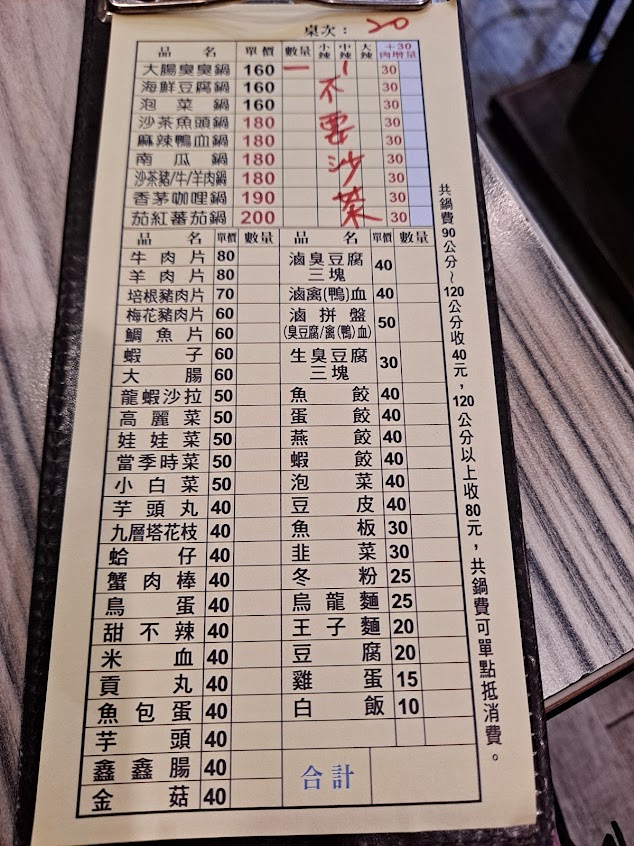 桌次： 20
品名 單價 數量 小辣 中辣 大辣 +30肉增量
大腸臭臭鍋 160 一 | 30
海鮮豆腐鍋 160 30
泡菜鍋 160 30
沙茶魚頭鍋 180 30
麻辣鴨血鍋 180 30
南瓜鍋 180 30
沙茶豬/牛/羊肉鍋 180 30
香茅咖哩鍋 190 30
茄紅蕃茄鍋 200 30
不要沙菜
品名 單價 數量 品名 單價 數量
牛肉片 80 滷臭豆腐三塊 40
羊肉片 80
培根豬肉片 70 滷禽(鴨)血 40
梅花豬肉片 60 滷拼盤 50
鯛魚片 60 (臭豆腐/禽(鴨)血)
蝦子 60 生臭豆腐三塊 30
大腸 60
龍蝦沙拉 50 魚餃 40
高麗菜 50 蛋餃 40
娃娃菜 50 燕餃 40
當季時菜 50 蝦餃 40
小白菜 50 泡菜 40
芋頭丸 40 豆皮 40
九層塔花枝 40 魚板 30
蛤仔 40 韭菜 30
蟹肉棒 40 冬粉 25
鳥蛋 40 烏龍麵 25
甜不辣 40 王子麵 20
米血 40 豆腐 20
貢丸 40 雞蛋 15
魚包蛋 40 白飯 10
芋頭 40
鑫鑫腸 40 合計
金菇 40
共鍋費90公分~120公分收40元，120公分以上收80元，共鍋費可單點抵消費。